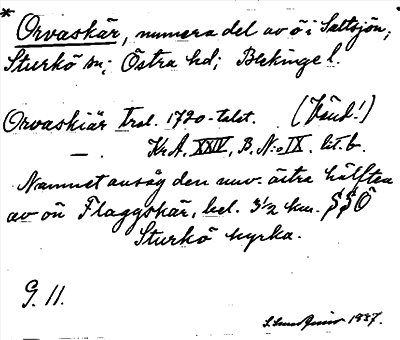 * Orvaskär, numera del av ö i Saltsjön;
Sturkö sn; Östra hd; Blekinge l.
Orvaskiär trol. 1720-talet. (Händ!)
— . Kr.A. XXIV, B. N:o IX. lit. b.
Namnet ansåg den nuv. östra hälften
av ön Flaggskär, bel. 3½ km. SSÖ
Sturkö kyrka.
G. 11.
1937.